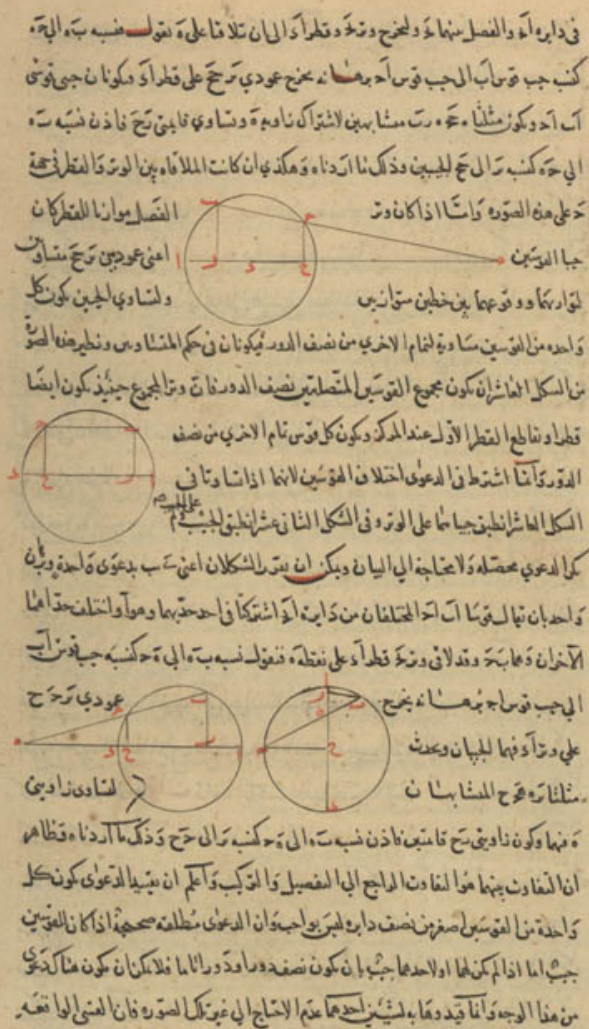 في دايره اد والفصل بينهما د وليخرج وتر حب وقطر اد الى ان تلاقيا على ه نقول نسبه به الى حه
كنسبه جيب قوس اب الى جيب قوس اح برهانه نخرج عمودي بر حح على قطر اد ويكونان جيبي قوسي
اب اح ويكون مثلثا ه ح ه ر ب متشابهين لاشتراك زاويه ه وتساوي قايمتي رح فاذن نسبه ب ه
الى حه كنسبه بر الى حح الجيبين وذلك ما اردناه وهكذي ان كانت الملاقاه بين الوتر والقطر في جهة
د على هذه الصوره واما اذا كان وتر
الفصل موازيا للقطر كان
جيبا القوسين
اعني عمودي بر حح متساويين
لتوازيهما ووقوعهما بين خطين متوازيين
ولتساوي الجيبين يكون كل
واحده من القوسين مساوية لتمام الاخرى من نصف الدور فيكونان في حكم المتساويين ونظير هذه الصورة
من الشكل العاشر ان يكون مجموع القوسين المتصلتين نصف الدور فان وتر المجموع حينيذ يكون ايضا
قطرا وتقاطع القطر الاول عند المركز ويكون كل قوس تمام الاخرى من نصف
الدور وانما اشترط في الدعوى اختلاف القوسين لانهما اذا تساوتا في
الشكل العاشر انطبق جيباهما على الوتر وفي الشكل الثاني عشر انطبق الجيب على الجيب فلم
تكن الدعوي محصله ولا محتاجة الي البيان ويمكن ان يقرر الشكلان اعني ي يب بدعوى واحدة وبرهان
واحد بان يقال قوسا اب اح المختلفان من دايرة اد اشتركتا في احد حديهما وهو ا واختلف حداهما
الاخران وهما ب ح وقد لاقى وتر بح قطر اد على نقطة ه فنقول نسبه ب ه الى ه ح كنسبه جيب قوس اب
الى جيب قوس اح برهانه نخرج
عمودي بر حح
على وتر اد فهما الجيبان ويحدث
مثلثا ب ر ه ح ح ه المتشابهان
لتساوي زاويتي
ه فيهما وكون زاويتي رح قايمتين فاذن نسبه ب ه الى ه ح كنسبه بر الى حح وذلك ما اردناه فظاهر
ان التفاوت بينهما هو التفاوت الراجع الى التفصيل والتركيب واعلم ان تقييد الدعوى بكون كل
واحدة من القوسين اصغر من نصف دايره ليس بواجب وان الدعوى مطلقه صحيحة اذا كان للقوسين
جيب اما اذا لم يكن لهما او لاحدهما جيب بان يكون نصف دور او دورا تاما فلا يمكن ان يكون هناك دعوى
من هذا الوجه وانما قيدوها به لشيئين احدهما عدم الاحتياج الى غير تلك الصوره فان القسي الواقعه